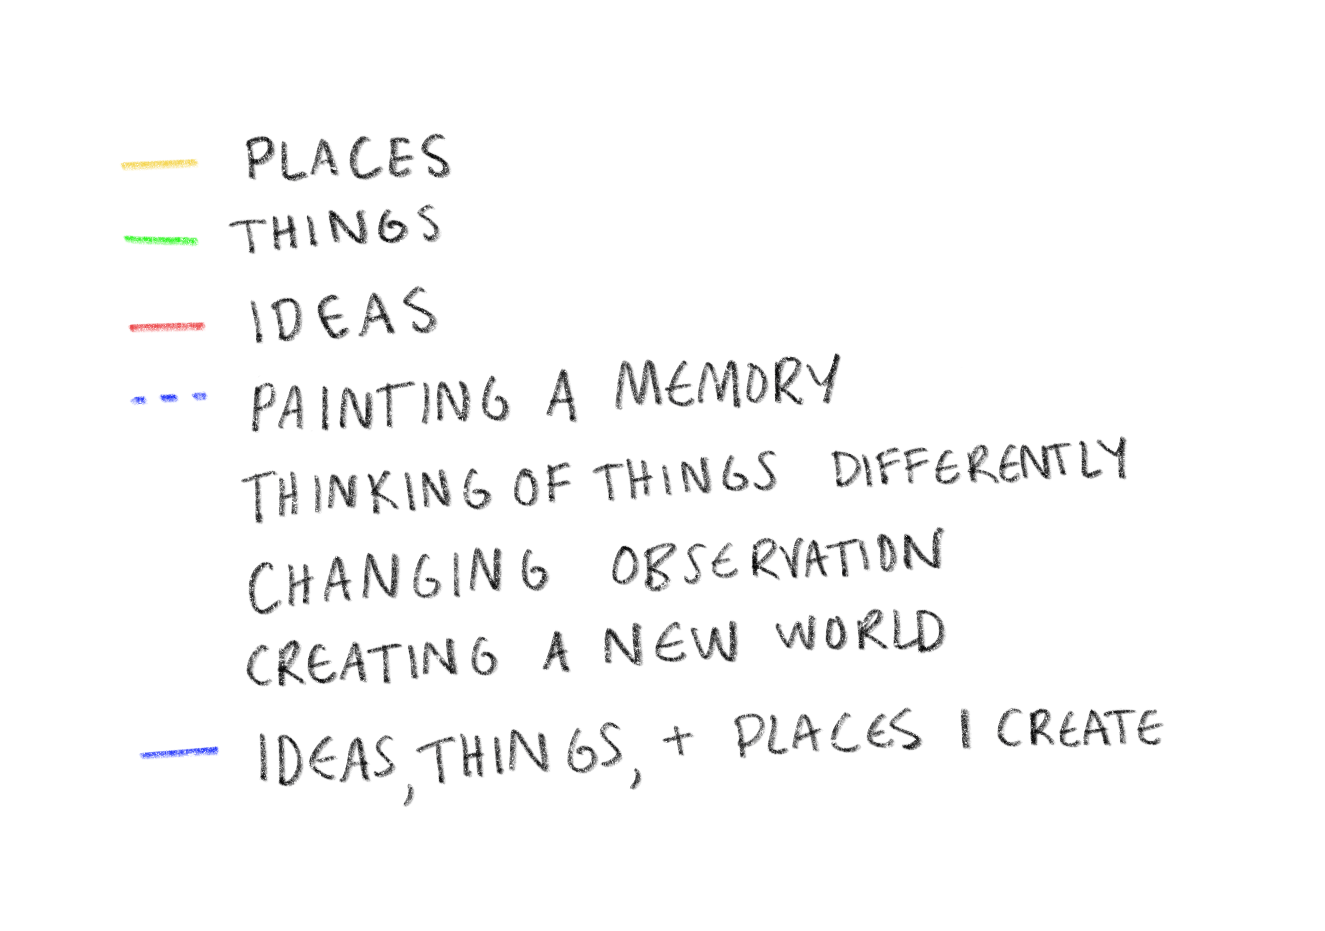 PLACES
THINGS
IDEAS
PAINTING A MEMORY
THINKING OF THINGS DIFFERENTLY
CHANGING OBSERVATION
CREATING A NEW WORLD
IDEAS, THINGS, + PLACES I CREATE